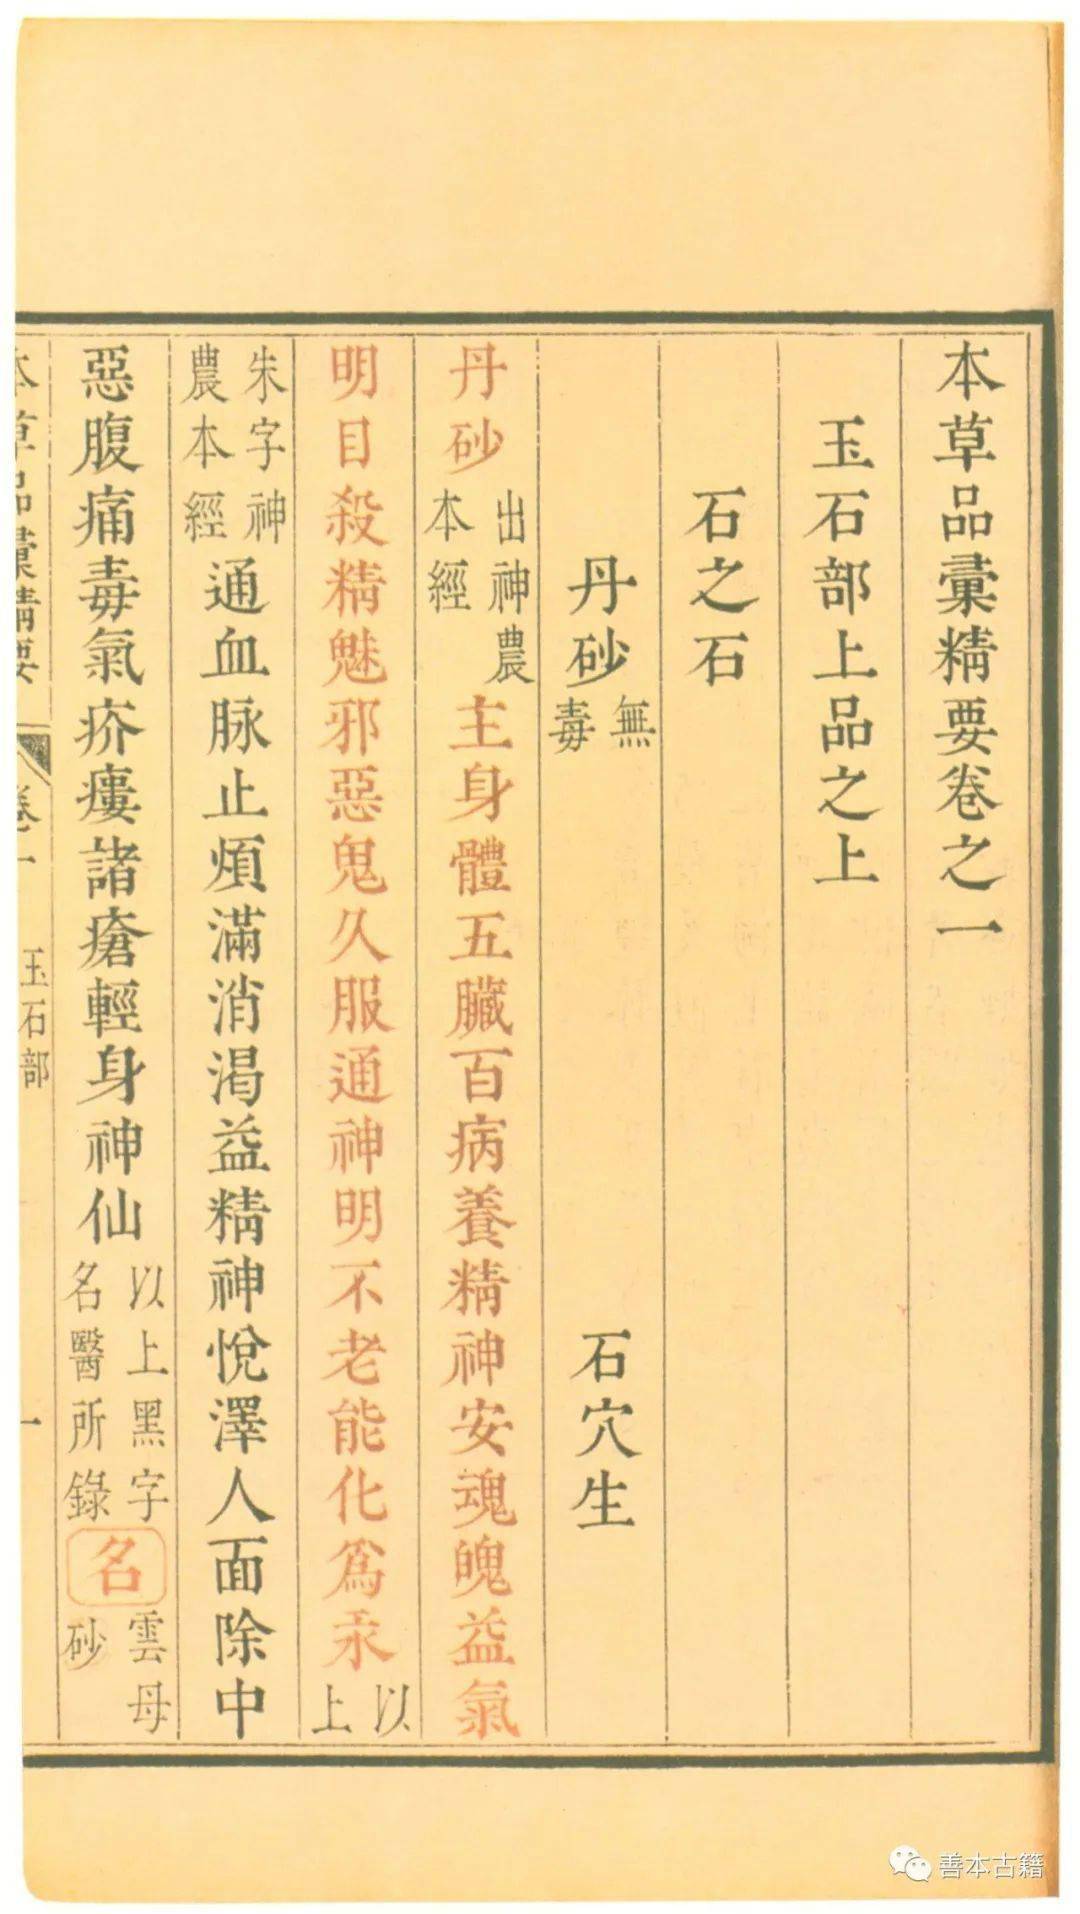 本草品彙精要卷之一
玉石部上品之上
石之石
丹砂無毒 石穴生
丹砂出神農本經主身體五臟百病養精神安魂魄益氣
明目殺精魅邪惡鬼久服通神明不老能化為汞以上
朱字神農本經通血脉止煩滿消渴益精神悅澤人面除中
惡腹痛毒氣疥瘻諸瘡輕身神仙以上黑字名醫所錄名雲母砂
本草品彙精要 卷一 玉石部 一
善本古籍